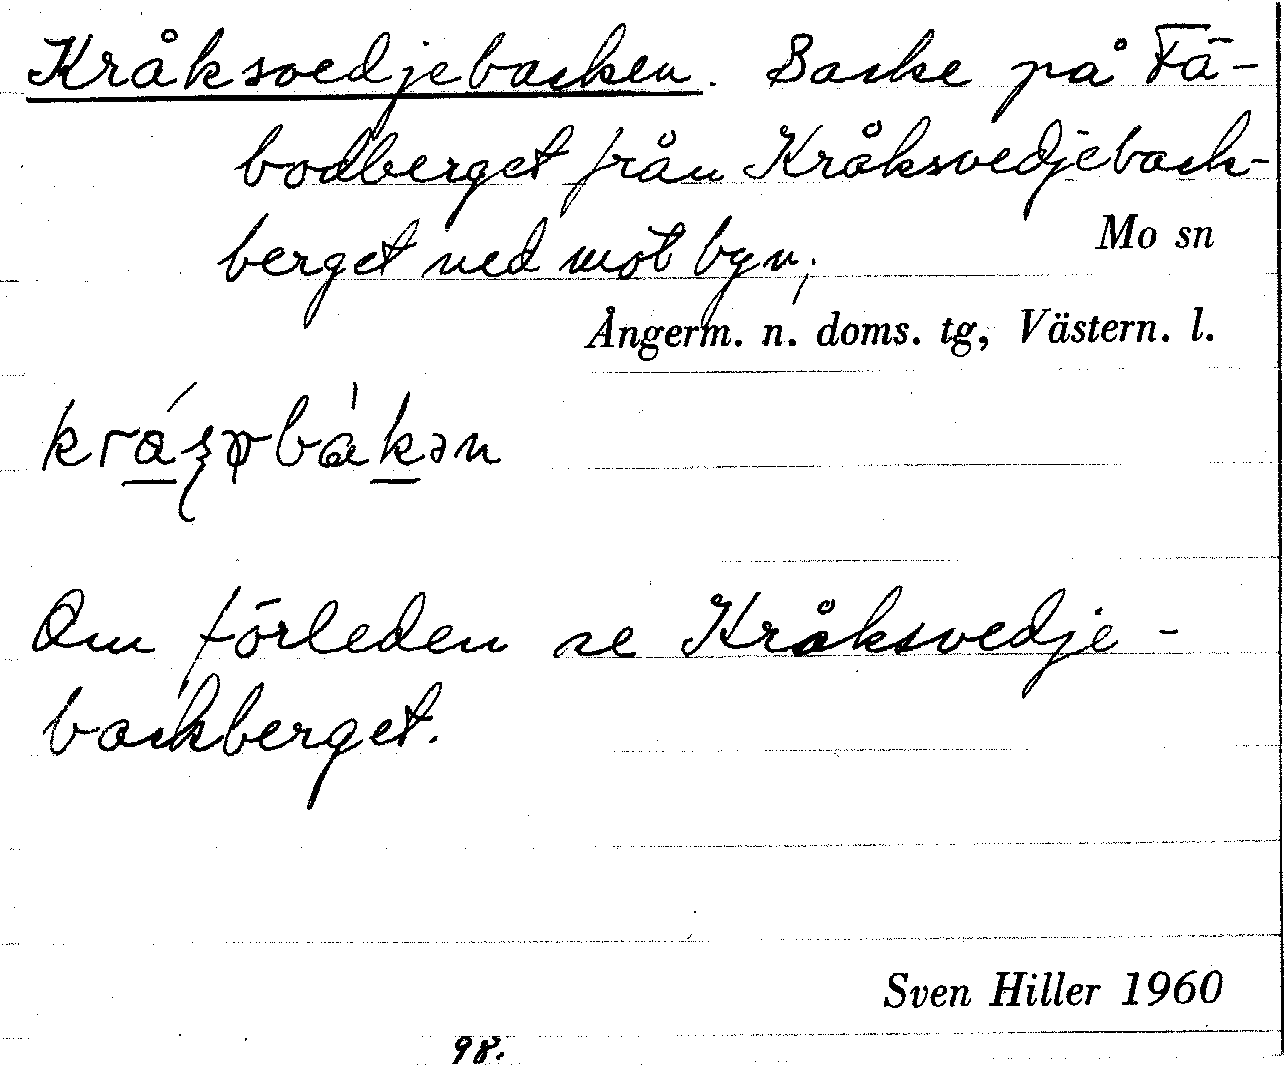 Kråksvedjebacken. Backe på Fä-
bodberget från Kråksvedjeback-
berget ned mot byn;
Mo sn
Ångerm. n. doms. tg, Västern. l.
Om förleden se Kråksvedje-
backberget.
Sven Hiller 1960
98.